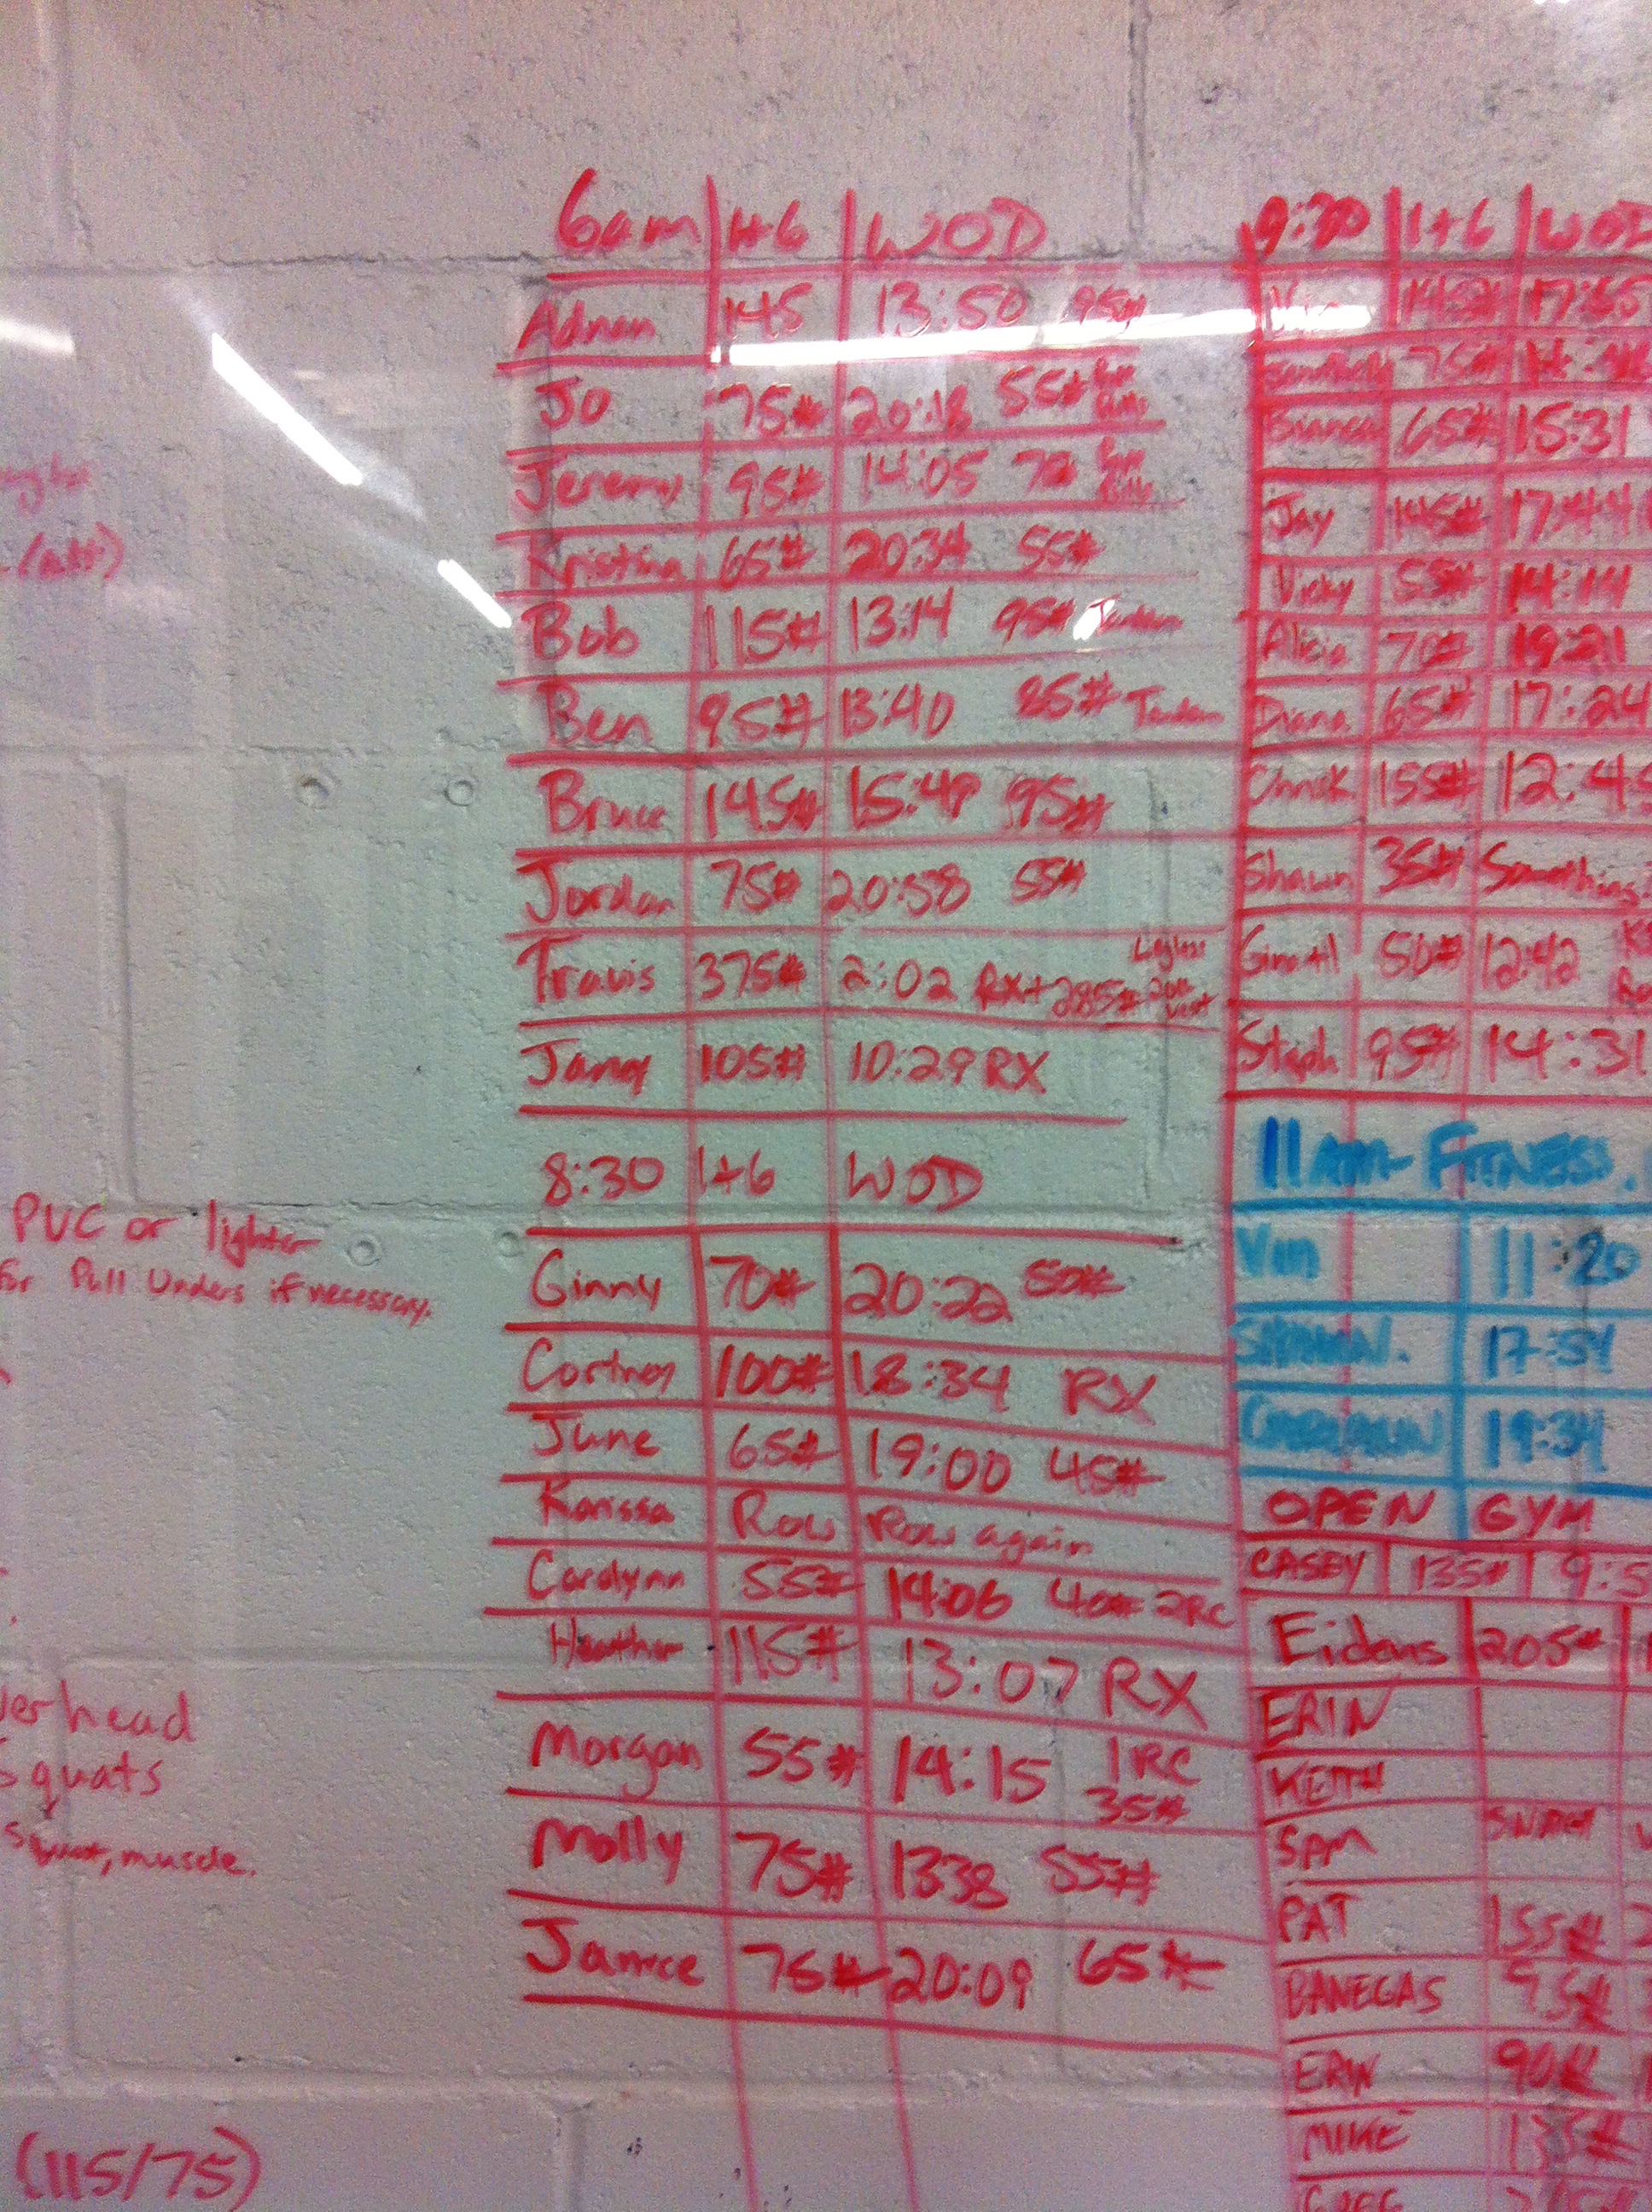 6am 1+6 WOD
Adnan 145 13:50 95#
Jo 75# 20:18 55#
Jeremy 95# 14:05
Kristina 65# 20:34 55#
Bob 115# 13:14 95#
Ben 95# 13:40 85#
Bruce 145# 15:49 95#
Jordan 75# 20:58 55#
Travis 375# 2:02 RX+ 285#
105# 10:29 RX
8:30 1+6 WOD
Ginny 70# 20:22 50#
Cortney 100# 18:34 RX
June 65# 19:00 45#
Karissa Row Row again
Carolynn 55# 14:06 40# 2RC
Heather 115# 13:07 RX
Morgan 55# 14:15 1RC
35#
Molly 75# 1338 55#
Janice 75# 20:09 65#
9:30 1+6 WOD
75#
Bianca 65# 15:31
Jay 145# 17:44
Vicky 55# 14:14
Alicia 70# 19:21
Diana 65# 17:24
Chuck 155# 12:4
Shawn 35# Something
50# 12:42
Steph 95# 14:31
11AM- FITNESS.
Vin 11:20
17:54
19:34
OPEN GYM
CASEY 135# 9:5
Eidens 205#
ERIN
KEITH
5PM
PAT 155#
BANEGAS 95#
ERIN 90#
MIKE 135#
(alt)
PVC or lighter
for Pull Unders if necessary.
erhead
Squats
muscle.
(115/75)